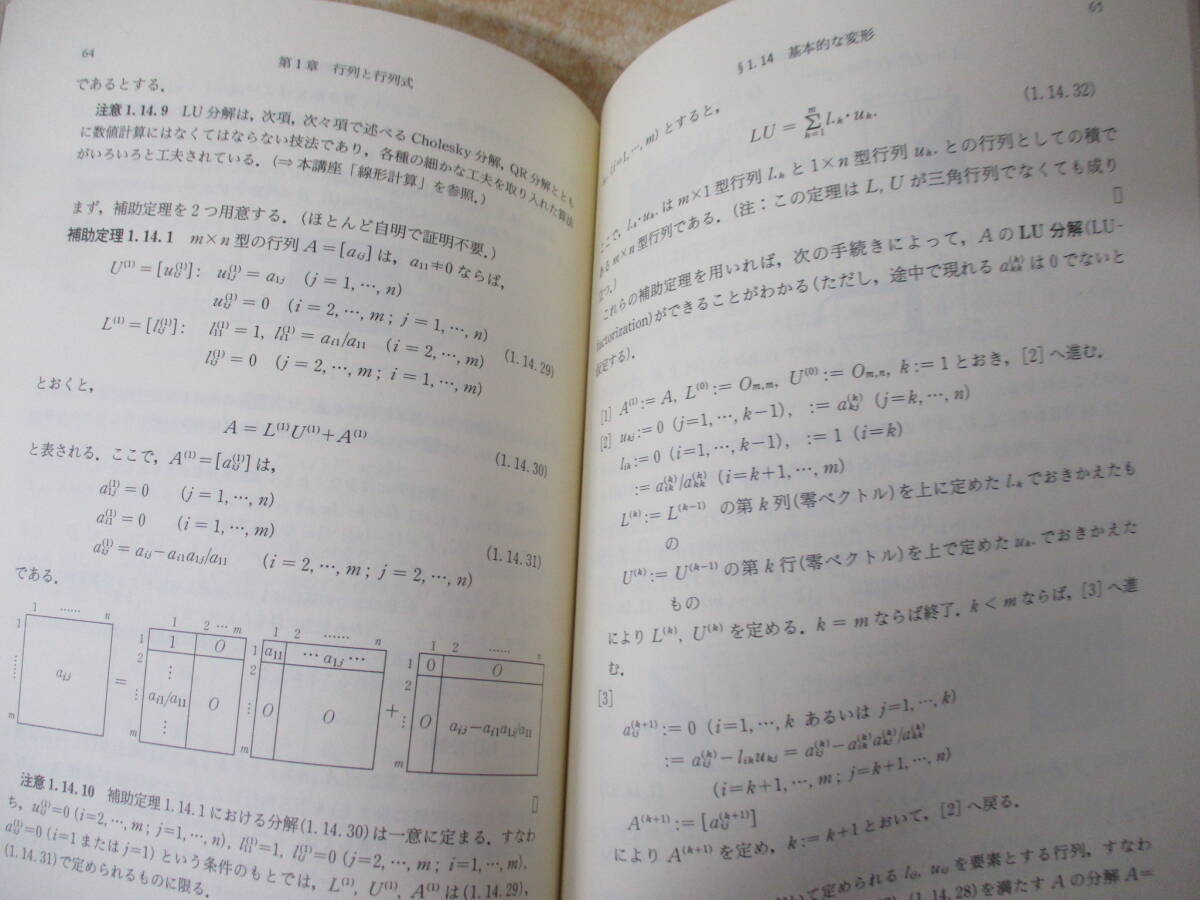 64
第1章 行列と行列式
であるとする.
注意1.14.9 LU分解は,次項,次々項で述べるCholesky分解,QR分解ととも
に数値計算にはなくてはならない技法であり,各種の細かな工夫を取り入れた算法
がいろいろと工夫されている.(⇒本講座「線形計算」を参照.)
まず,補助定理を2つ用意する.(ほとんど自明で証明不要.)
補助定理1.14.1 m×n型の行列A=[aᵢⱼ]は,a₁₁≠0ならば,
U⁽¹⁾=[uᵢⱼ⁽¹⁾]: u₁ⱼ⁽¹⁾=a₁ⱼ (j=1,…,n)
uᵢⱼ⁽¹⁾=0 (i=2,…,m; j=1,…,n)
L⁽¹⁾=[lᵢⱼ⁽¹⁾]: l₁₁⁽¹⁾=1, lᵢ₁⁽¹⁾=aᵢ₁/a₁₁ (i=2,…,m) (1.14.29)
lᵢⱼ⁽¹⁾=0 (j=2,…,m; i=1,…,m)
とおくと,
A=L⁽¹⁾U⁽¹⁾+A⁽¹⁾ (1.14.30)
と表される.ここで,A⁽¹⁾=[aᵢⱼ⁽¹⁾]は,
a₁ⱼ⁽¹⁾=0 (j=1,…,n)
aᵢ₁⁽¹⁾=0 (i=1,…,m)
aᵢⱼ⁽¹⁾=aᵢⱼ−aᵢ₁a₁ⱼ/a₁₁ (i=2,…,m; j=2,…,n) (1.14.31)
である.
1 …… n
1 …… m
aᵢⱼ
=
1 2 … m
1 2 ⋮ m
1 O
⋮ aᵢ₁/a₁₁ ⋮ O
1 2 …… n
1 2 ⋮ m
a₁₁ … a₁ⱼ …
O O
+
1 2 …… n
1 2 ⋮ m
0 O
O aᵢⱼ−aᵢ₁a₁ⱼ/a₁₁
注意1.14.10 補助定理1.14.1における分解(1.14.30)は一意に定まる.すなわ
ち,uᵢⱼ⁽¹⁾=0(i=2,…,m; j=1,…,n), l₁₁⁽¹⁾=1, lᵢⱼ⁽¹⁾=0(j=2,…,m; i=1,…,m),
aᵢⱼ⁽¹⁾=0(i=1またはj=1)という条件のもとでは,L⁽¹⁾, U⁽¹⁾, A⁽¹⁾は(1.14.29),
(1.14.31)で定められるものに限る.
65
§1.14 基本的な変形
(i=1,…,m)とすると,
LU=∑ₖ₌₁ᵐ l.ₖ·uₖ. (1.14.32)
ここで,l.ₖ·uₖ.はm×1型行列l.ₖと1×n型行列uₖ.との行列としての積で
あるm×n型行列である.(注:この定理はL, Uが三角行列でなくても成り
立つ.)
これらの補助定理を用いれば,次の手続きによって,AのLU分解(LU-
factorization)ができることがわかる(ただし,途中で現れるaₖₖ⁽ᵏ⁾は0でないと
仮定する).
[1] A⁽¹⁾:=A, L⁽⁰⁾:=Oₘ,ₘ, U⁽⁰⁾:=Oₘ,ₙ, k:=1とおき,[2]へ進む.
[2] uₖⱼ:=0 (j=1,…,k−1), :=aₖⱼ⁽ᵏ⁾ (j=k,…,n)
lᵢₖ:=0 (i=1,…,k−1), :=1 (i=k)
:=aᵢₖ⁽ᵏ⁾/aₖₖ⁽ᵏ⁾ (i=k+1,…,m)
L⁽ᵏ⁾:=L⁽ᵏ⁻¹⁾の第k列(零ベクトル)を上に定めたl.ₖでおきかえたも
の
U⁽ᵏ⁾:=U⁽ᵏ⁻¹⁾の第k行(零ベクトル)を上で定めたuₖ.でおきかえた
もの
によりL⁽ᵏ⁾, U⁽ᵏ⁾を定める.k=mならば終了.k<mならば,[3]へ進
む.
[3]
aᵢⱼ⁽ᵏ⁺¹⁾:=0 (i=1,…,kあるいはj=1,…,k)
:=aᵢⱼ⁽ᵏ⁾−lᵢₖuₖⱼ=aᵢⱼ⁽ᵏ⁾−aᵢₖ⁽ᵏ⁾aₖⱼ⁽ᵏ⁾/aₖₖ⁽ᵏ⁾
(i=k+1,…,m; j=k+1,…,n)
A⁽ᵏ⁺¹⁾:=[aᵢⱼ⁽ᵏ⁺¹⁾]
によりA⁽ᵏ⁺¹⁾を定め,k:=k+1とおいて,[2]へ戻る.
いて定められるlᵢⱼ, uᵢⱼを要素とする行列,すなわ
(1.14.28)を満たすAの分解A=